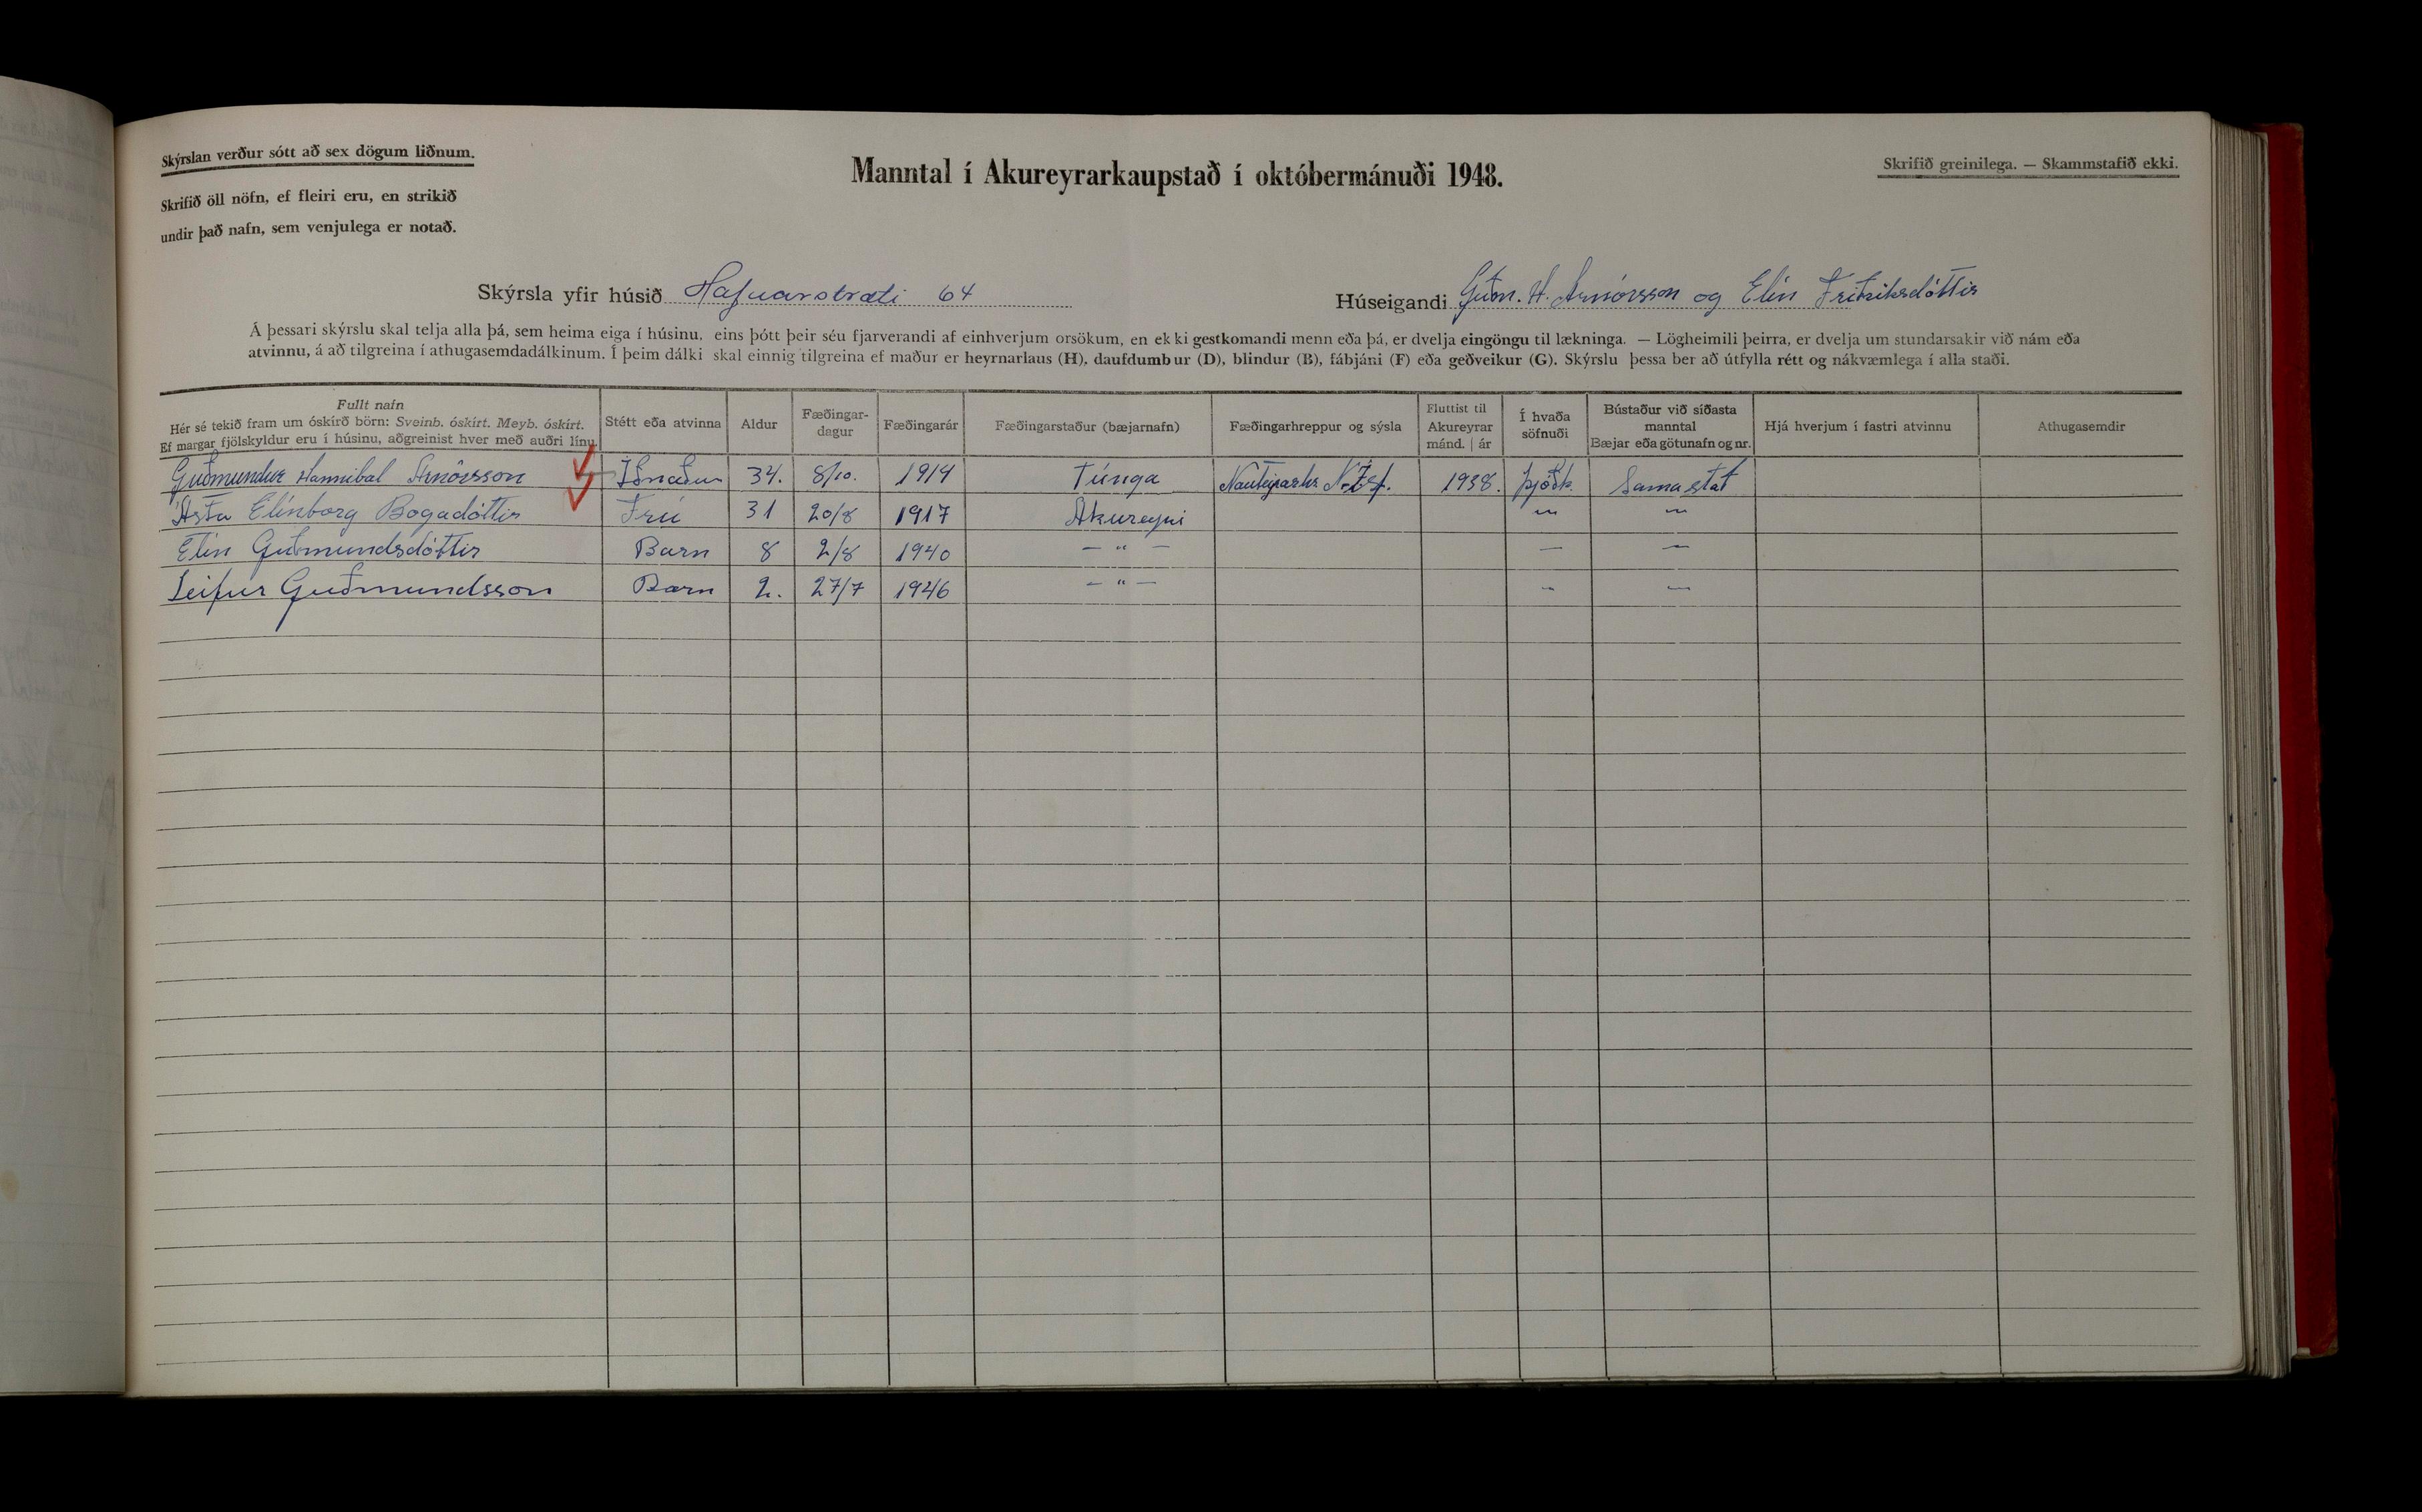 Skýrslan verður sótt að sex dögum liðnum.
Skrifið öll nöfn, ef fleiri eru, en strikið
undir það nafn, sem venjulega er notað.
Manntal í Akureyrarkaupstað í októbermánuði 1948.
Skrifið greinilega. — Skammstafið ekki.
Skýrsla yfir húsið Hafnarstræti 64
Húseigandi Guðm. H. Arnórsson og Elín Friðriksdóttir
Á þessari skýrslu skal telja alla þá, sem heima eiga í húsinu, eins þótt þeir séu fjarverandi af einhverjum orsökum, en ekki gestkomandi menn eða þá, er dvelja eingöngu til lækninga. — Lögheimili þeirra, er dvelja um stundarsakir við nám eða
atvinnu, á að tilgreina í athugasemdadálkinum. Í þeim dálki skal einnig tilgreina ef maður er heyrnarlaus (H), daufdumbur (D), blindur (B), fábjáni (F) eða geðveikur (G). Skýrslu þessa ber að útfylla rétt og nákvæmlega í alla staði.
Fullt nafn
Hér sé tekið fram um óskírð börn: Sveinb. óskírt. Meyb. óskírt.
Ef margar fjölskyldur eru í húsinu, aðgreinist hver með auðri línu.
Stétt eða atvinna
Aldur
Fæðingar-
dagur
Fæðingarár
Fæðingarstaður (bæjarnafn)
Fæðingarhreppur og sýsla
Fluttist til
Akureyrar
mánd. | ár
Í hvaða
söfnuði
Bústaður við síðasta
manntal
Bæjar eða götunafn og nr.
Hjá hverjum í fastri atvinnu
Athugasemdir
Guðmundur Hannibal Arnórsson Iðnaður 34. 8/10. 1914 Túnga Nauteyrarhr N-Ísf. 1938. þjóðk. Sama stað
Ásta Elínborg Bogadóttir Frú 31 20/8 1917 Akureyri " "
Elín Guðmundsdóttir Barn 8 2/8 1940 — " — — —
Leifur Guðmundsson Barn 2. 27/7 1946 — " — - —